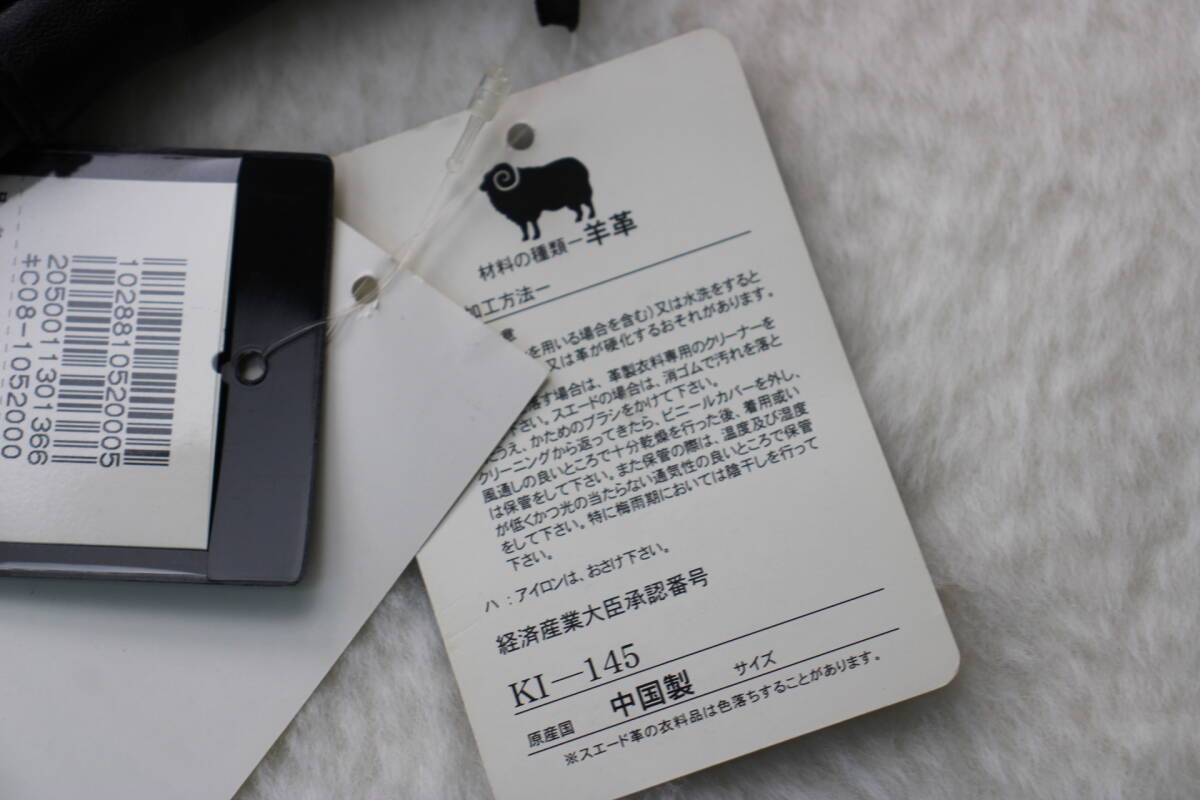 材料の種類ー羊革
加工方法ー
を用いる場合を含む)又は水洗をすると
又は革が硬化するおそれがあります。
落す場合は、革製衣料専用のクリーナーを
下さい。スエードの場合は、消ゴムで汚れを落と
したうえ、かためのブラシをかけて下さい。
クリーニングから返ってきたら、ビニールカバーを外し、
風通しの良いところで十分乾燥を行った後、着用或い
は保管をして下さい。また保管の際は、温度及び湿度
が低くかつ光の当たらない通気性の良いところで保管
をして下さい。特に梅雨期においては陰干しを行って
下さい。
ハ:アイロンは、おさけ下さい。
経済産業大臣承認番号
KI—145
原産国 中国製 サイズ
※スエード革の衣料品は色落ちすることがあります。
1028810520005
2050011301366
C08-1052000